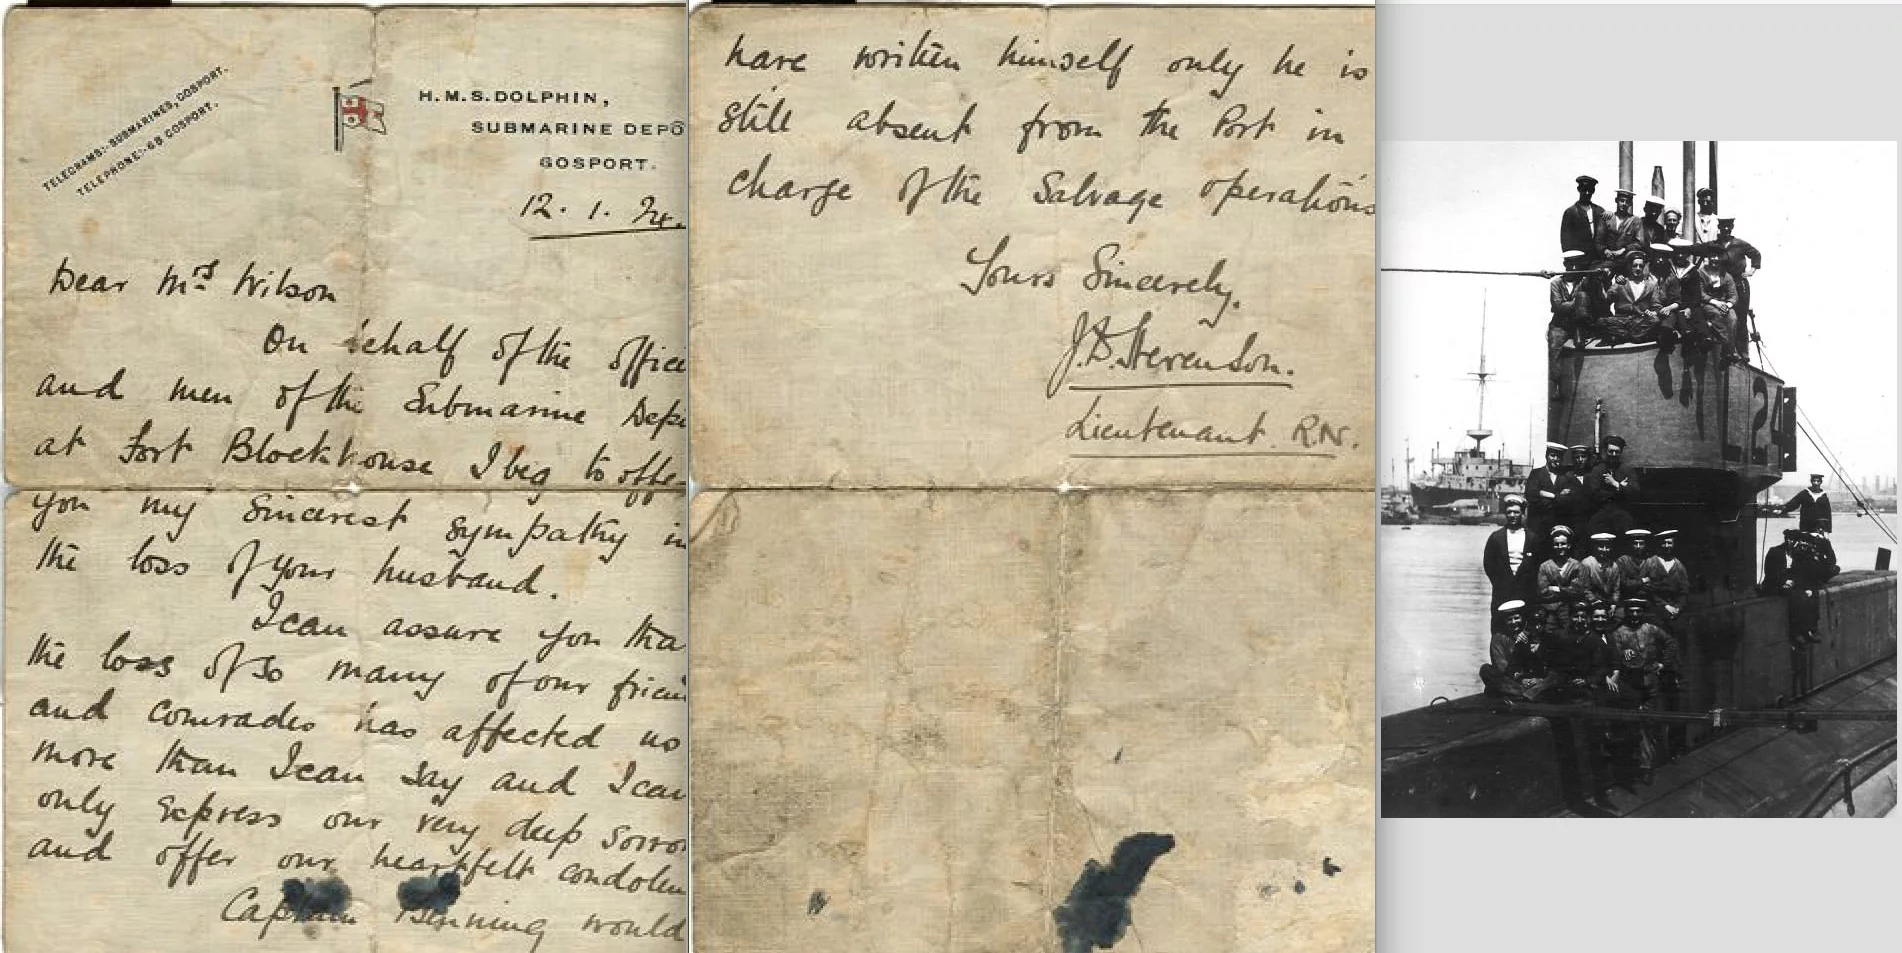 TELEGRAMS:- SUBMARINES, GOSPORT.
TELEPHONE:- 68 GOSPORT.
H.M.S. DOLPHIN,
SUBMARINE DEPÔ
GOSPORT.
12. 1. 24.
Dear Mrs Wilson
On behalf of the office
and men of the Submarine Depo
at Fort Blockhouse I beg to offe
you my sincerest sympathy in
the loss of your husband.
I can assure you tha
the loss of so many of our frien
and comrades has affected us
more than I can say and I can
only express our very deep sorro
and offer our heartfelt condolen
Captain would
have written himself only he is
still absent from the Port in
charge of the Salvage operations
Yours Sincerely,
J.D. Stevenson.
Lieutenant. R.N.
L24